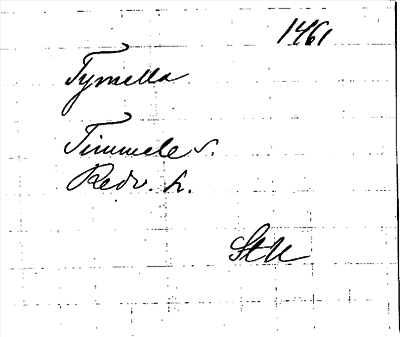 1461
Tyrnella
Timmele s.
Redv. h.
StU